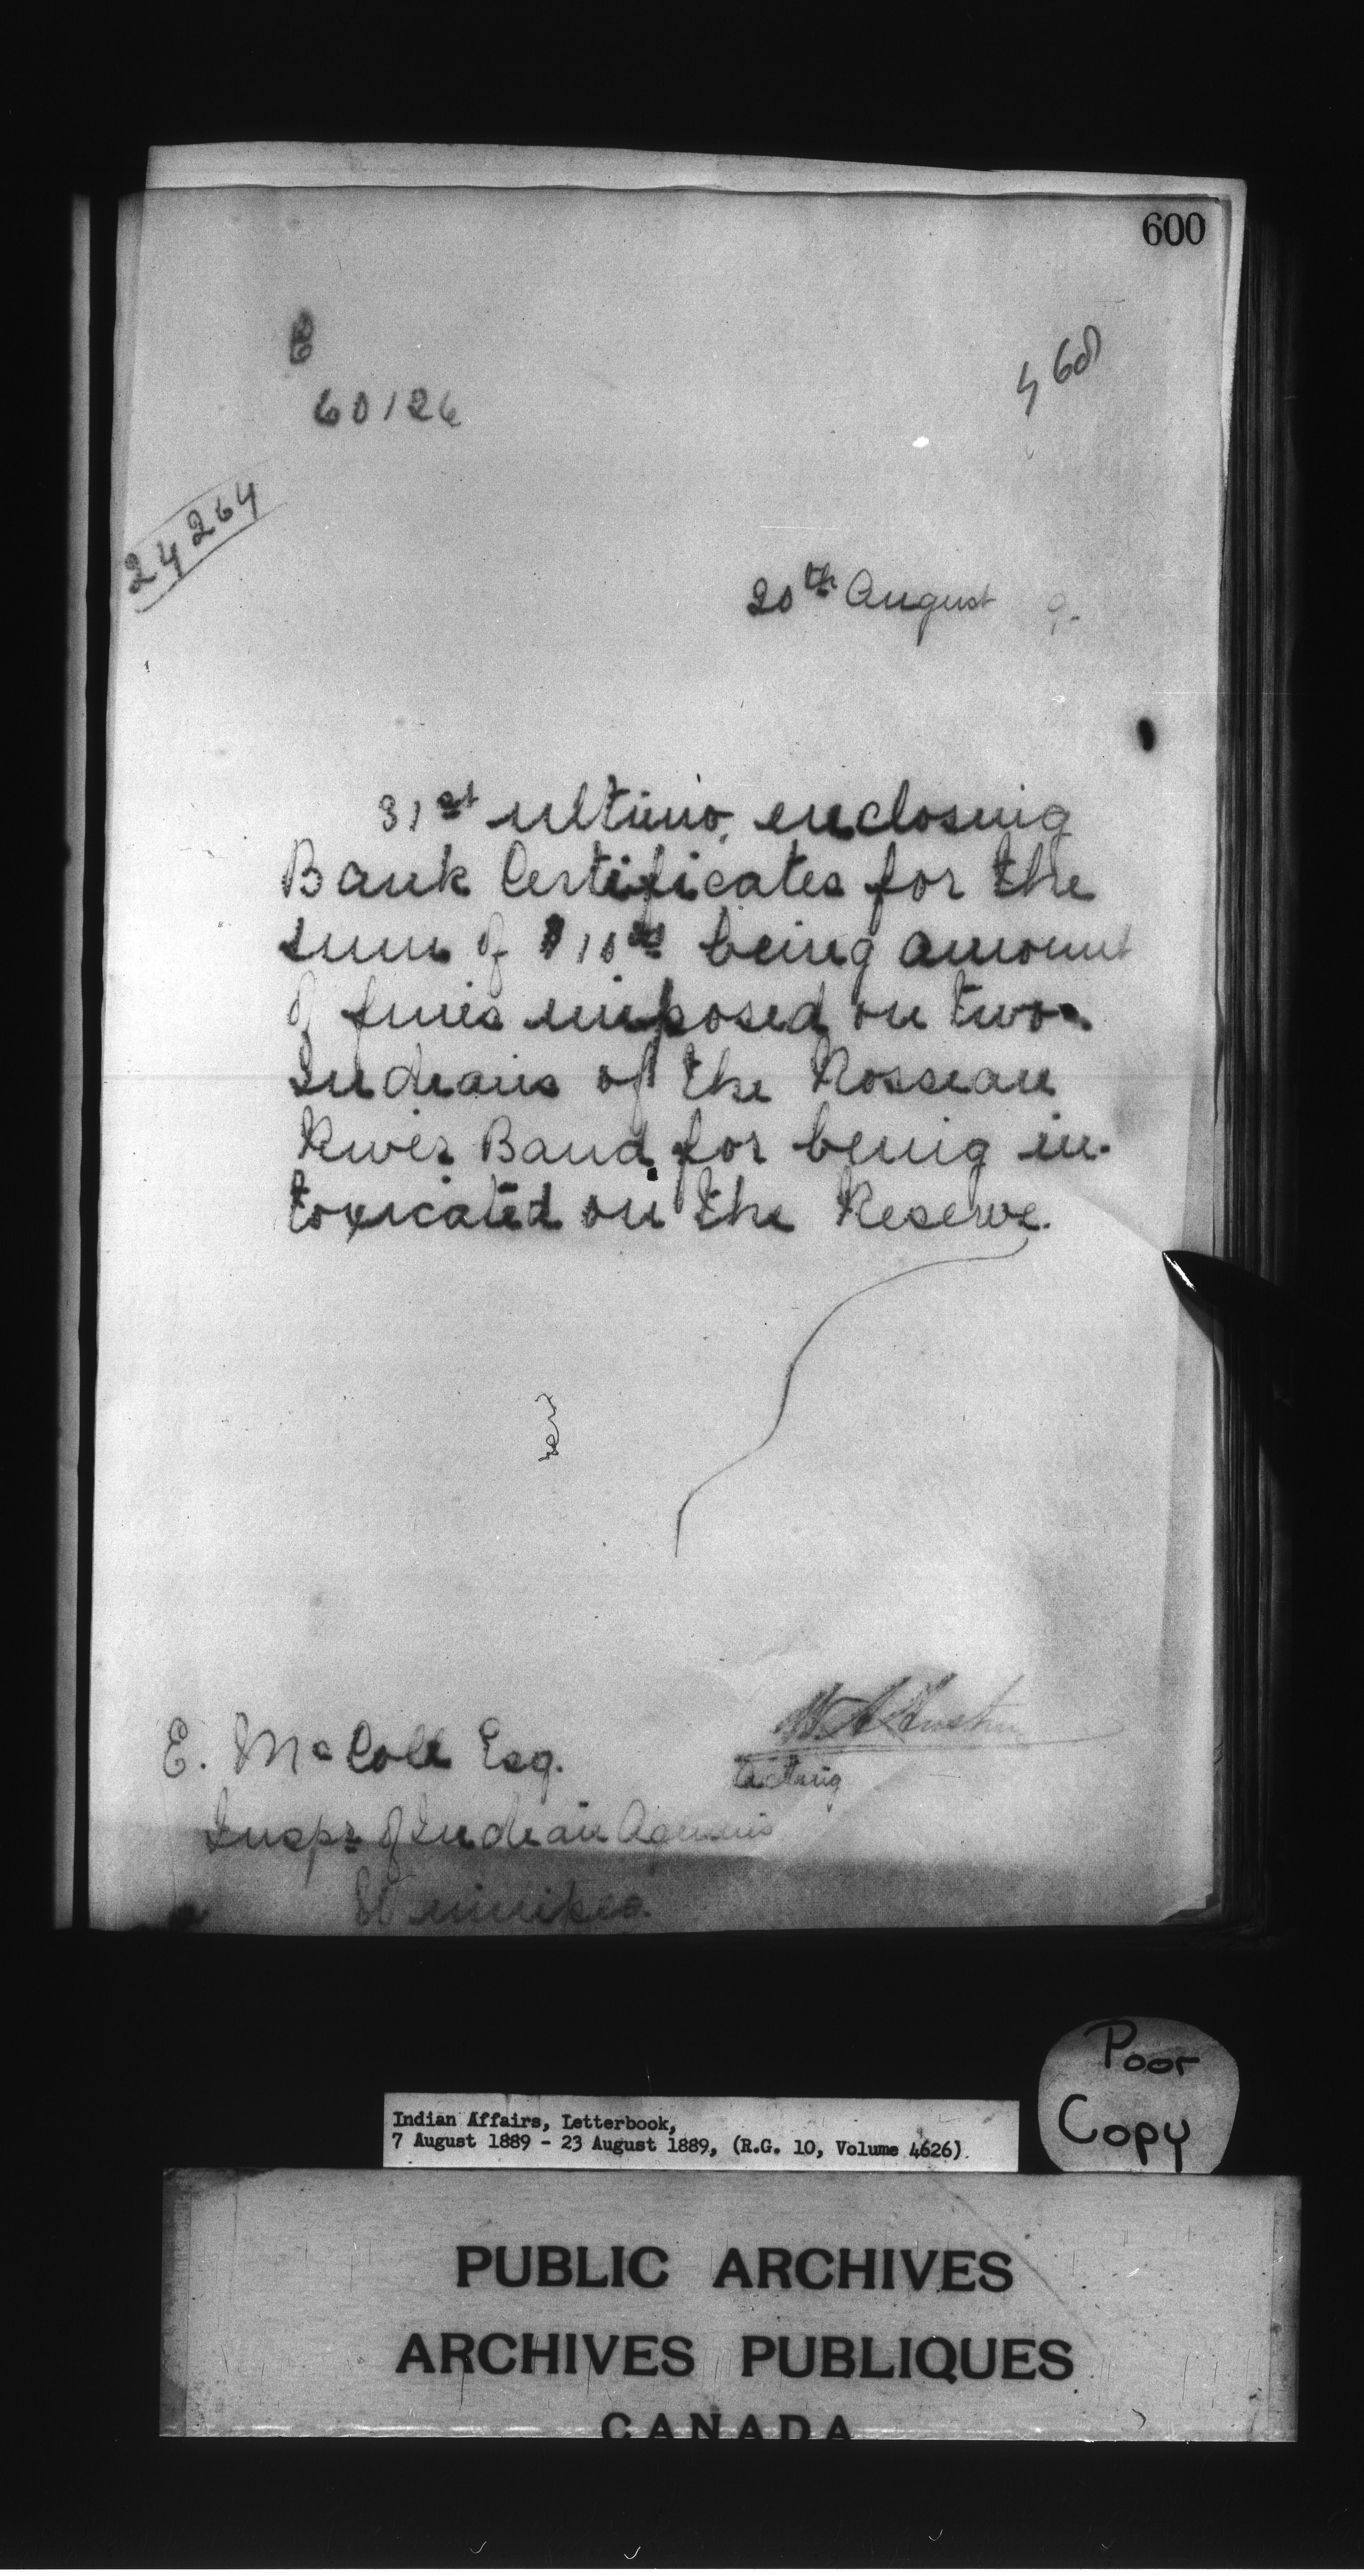 600
B
60126
468
24264
20th August 9.
31st ultimo, enclosing
Bank Certificates for the
sum of $10 00 being amount
of fines imposed on two
Indians of the Rosseau
River Band for being in-
toxicated on the Reserve.
E. McColl Esq.
Acting
Inspr of Indian Agencies
Winnipeg.
Poor
Copy
Indian Affairs, Letterbook,
7 August 1889 - 23 August 1889, (R.G. 10, Volume 4626)
PUBLIC ARCHIVES
ARCHIVES PUBLIQUES
CANADA